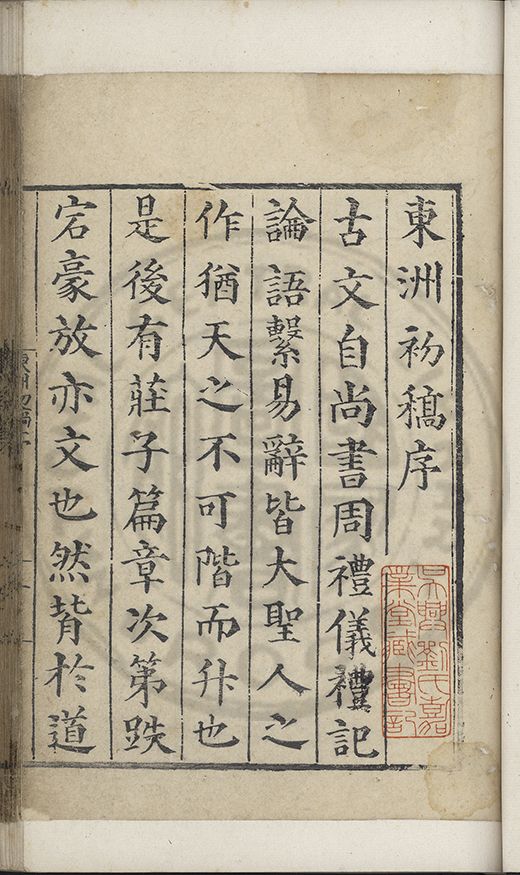 東洲初稿序
古文自尚書周禮儀禮記
論語繫易辭皆大聖人之
作猶天之不可階而升也
是後有莊子篇章次第跌
宕豪放亦文也然背於道
吳興劉氏嘉
業堂臧書記